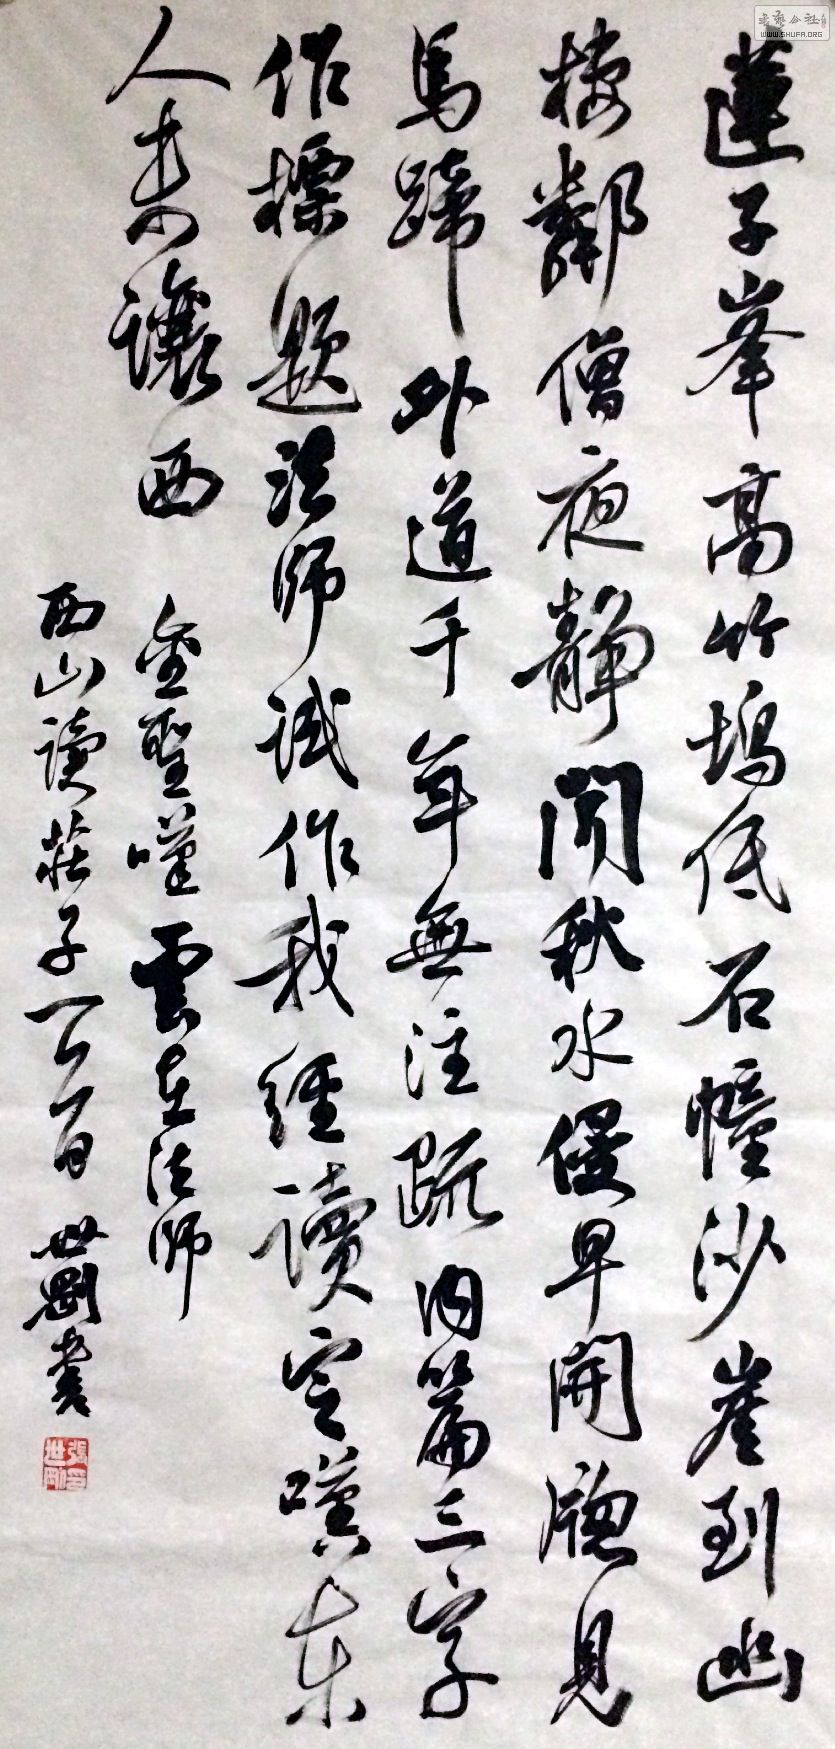 蓮子峯高竹塢低石幢沙崖到幽
棲鄰僧夜靜聞秋水侵早開牕見
馬蹄外道千年無注疏内篇三字
作標題法師試作我經讀定嘆東
人未讓西
金聖嘆雲在法師
西山讀莊子一百 世剛書
張世剛印
書藝公社
WWW.SHUFA.ORG